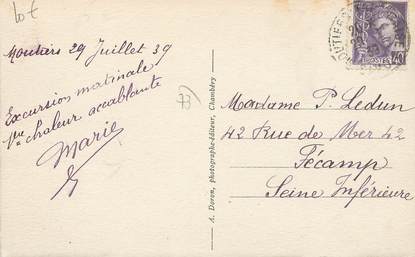 10€
Moutiers 29 Juillet 39
Excursion matinale
chaleur accablante
Marie
73
A. Doron, photographe-éditeur, Chambéry
POSTES
40
Madame P. Ledun
42 Rue de Mer 42
Fécamp
Seine Inférieure